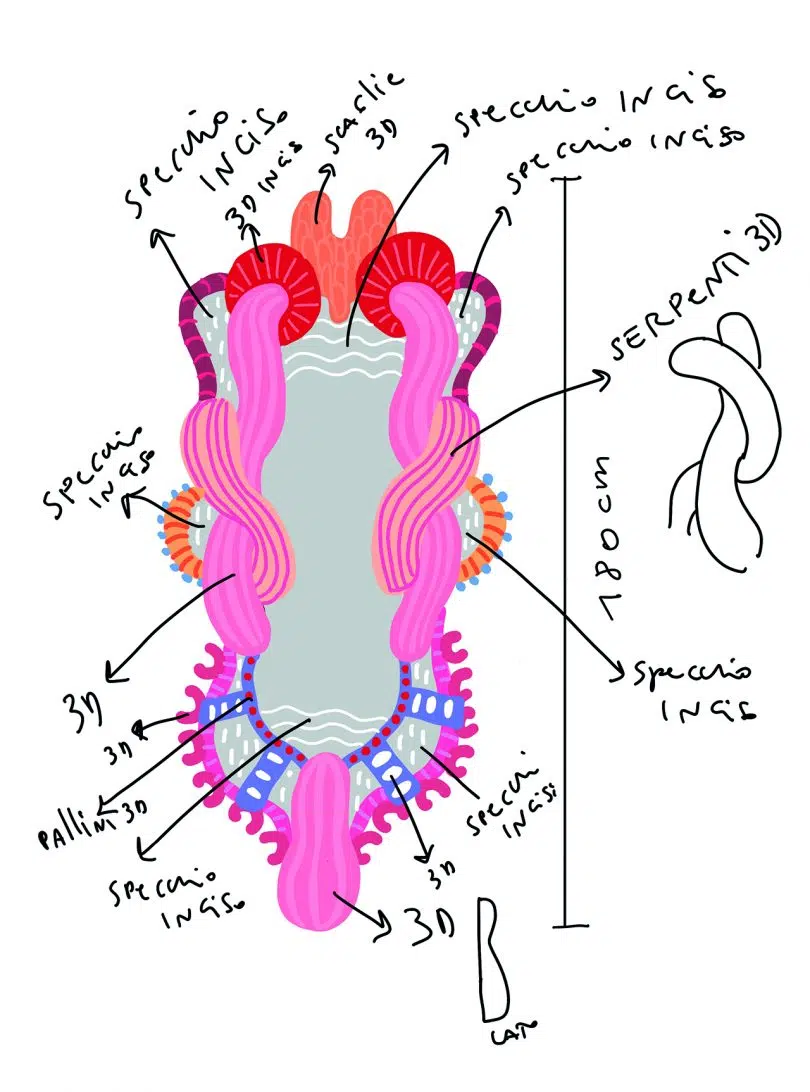 SPECCHIO
INCISO
3D INCIS
SCAGLIE
3D
SPECCHIO INCISO
SPECCHIO INCISO
SERPENTI 3D
SPECCHIO
INCISO
180 cm
3D
3D
PALLINI 3D
SPECCHIO
INCISO
SPECCHIO
INCIS
SPECCHI
INCISI
3D
3D
LATO